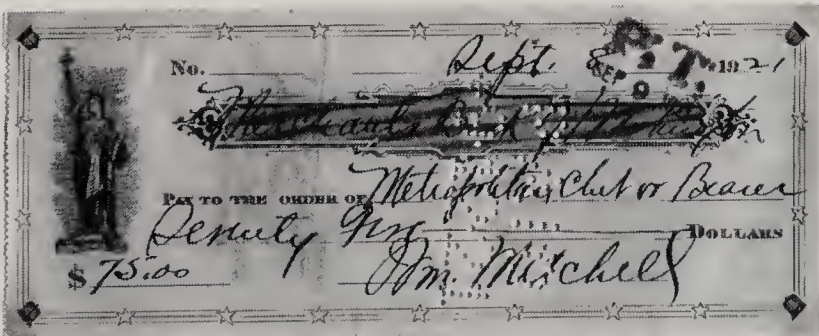 No. Sept. 8 1921
Merchants Bank of
PAY TO THE ORDER OF Metropolitan Club or Bearer
Seventy five DOLLARS
$ 75.00 Wm. Mitchell